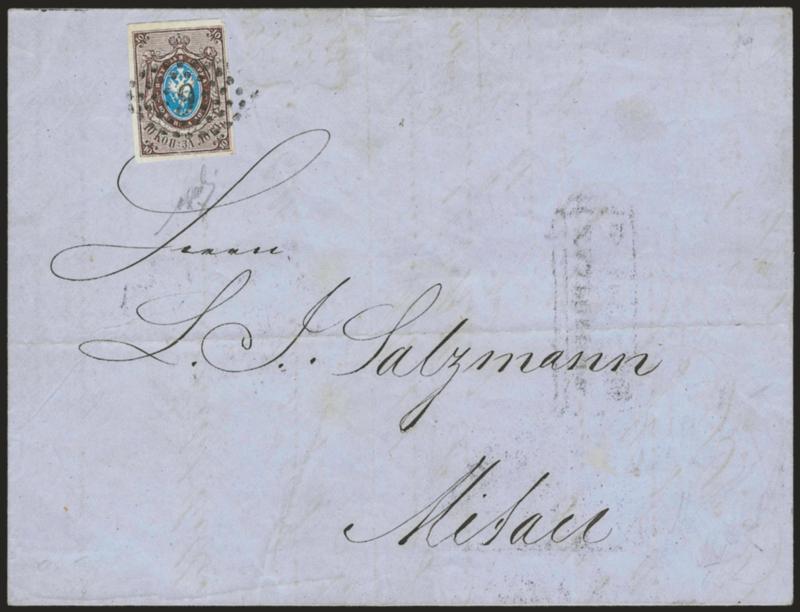 10 10
10 КОП: ЗА ЛОТЪ
10 10
Herrn
L. J. Salzmann
Mitau